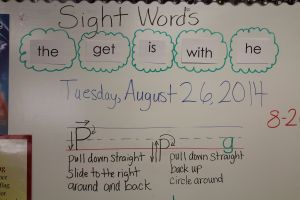 Sight Words
the get is with he
Tuesday, August 26, 2014
8-2
P P g
pull down straight
slide to the right
around and back
pull down straight
back up
circle around